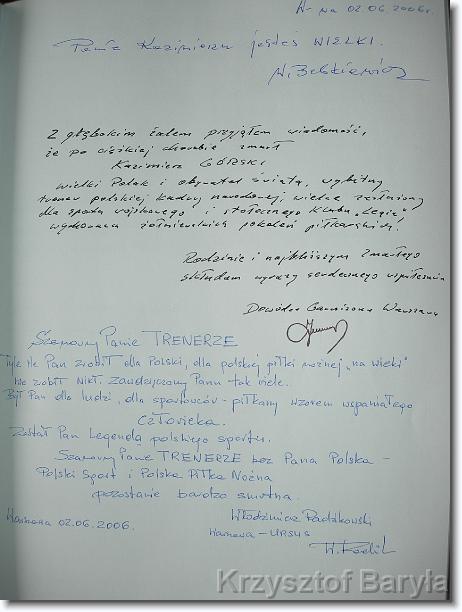 W-wa 02.06.2006r.
Panie Kazimierzu jesteś WIELKI.
Z głębokim żalem przyjąłem wiadomość,
że po ciężkiej chorobie zmarł
Kazimierz GÓRSKI
Wielki Polak i obywatel świata, wybitny
trener polskiej kadry narodowej, wielce zasłużony
dla sportu wojskowego i stołecznego klubu „Legia”
wychowawca żołnierskich pokoleń piłkarskich.
Rodzinie i najbliższym Zmarłego
składam wyrazy serdecznego współczucia
Dowódca Garnizonu Warszawa
Szanowny Panie TRENERZE
Tyle ile Pan zrobił dla Polski, dla polskiej piłki nożnej „na wieki”
nie zrobił nikt. Zawdzięczamy Panu tak wiele.
Był Pan dla ludzi, dla sportowców - piłkarzy wzorem wspaniałego
CZŁOWIEKA.
Został Pan Legendą polskiego sportu.
Szanowny Panie TRENERZE bez Pana Polska -
Polski Sport i Polska Piłka Nożna
pozostanie bardzo smutna.
Warszawa 02.06.2006.
Włodzimierz Radzikowski
Warszawa - URSUS
Krzysztof Baryła